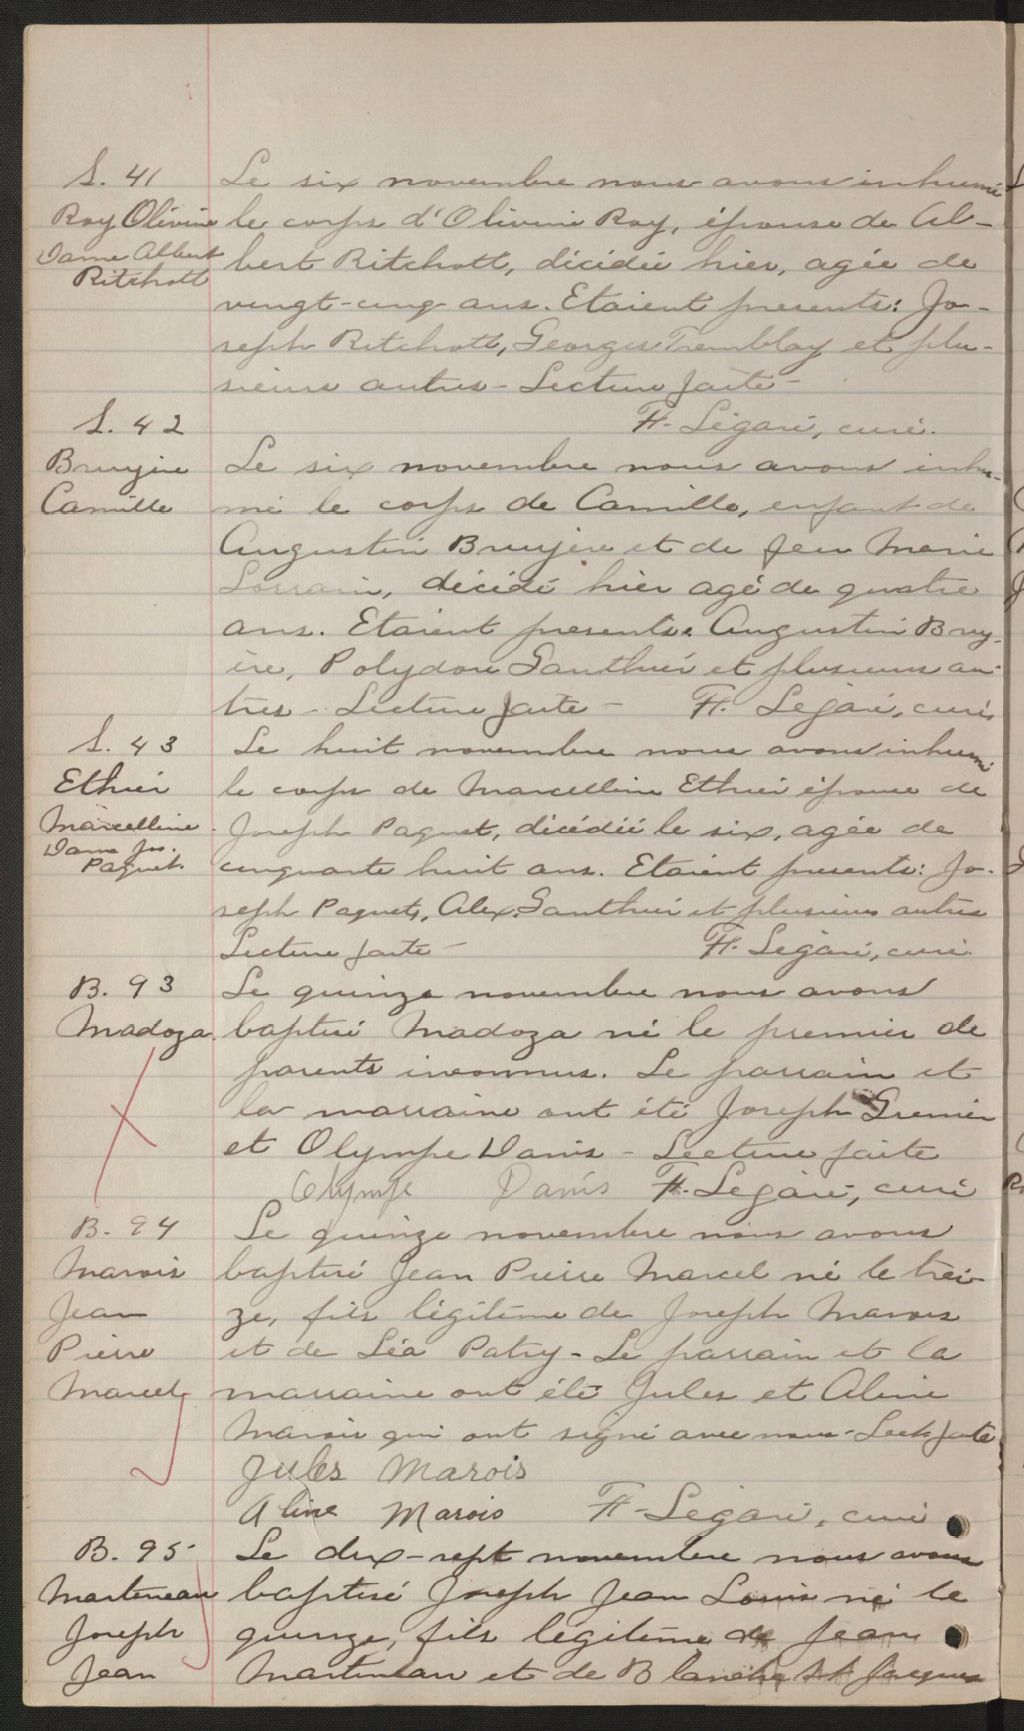 S. 41
Roy Olivine
Dame Albert
Ritchott
Le six novembre nous avons inhumé
le corps d'Olivine Roy, épouse de Al-
bert Ritchott, décédée hier, agée de
vingt-cinq ans. Etaient presents: Jo-
seph Ritchott, Georges Tremblay et plu-
sieurs autres - Lecture faite -
F.H. Légaré, curé.
S. 42
Bruyère
Camille
Le six novembre nous avons inhu-
mé le corps de Camille, enfant de
Augustin Bruyère et de feu Marie
Lorrain, décédé hier agé de quatre
ans. Etaient presents: Augustin Bruy-
ère, Polydore Gauthier et plusieurs au-
tres - Lecture faite - F.H. Légaré, curé
S. 43
Ethier
Marcelline
Dame Jos.
Paquet.
Le huit novembre nous avons inhumé
le corps de Marcelline Ethier épouse de
Joseph Paquet, décédée le six, agée de
cinquante huit ans. Etaient presents: Jo-
seph Paquet, Alex. Gauthier et plusieurs autres
Lecture faite - F.H. Légaré, curé.
B. 93
Madoza
Le quinze novembre nous avons
baptisé Madoza né le premier de
parents inconnus. Le parrain et
la marraine ont été Joseph Grenier
et Olympe Danis - Lecture faite
Olympe Danis F.H. Légaré, curé
B. 94
Marois
Jean
Pierre
Marcel
Le quinze novembre nous avons
baptisé Jean Pierre Marcel né le trei-
ze, fils légitime de Joseph Marois
et de Léa Patry - Le parrain et la
marraine ont été Jules et Aline
Marois qui ont signé avec nous - Lect. faite
Jules Marois
Aline Marois F.H. Légaré, curé
B. 95
Martineau
Joseph
Jean
Le dix-sept novembre nous avons
baptisé Joseph Jean Louis né le
quinze, fils légitime de Jean
Martineau et de Blanche St Jacques